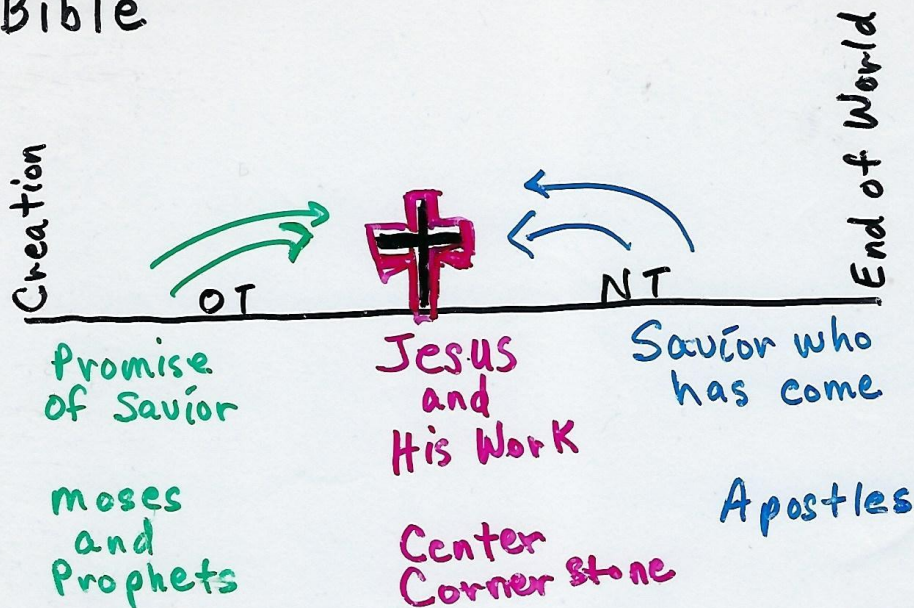 Bible
Creation
End of World
OT
NT
Promise
of Savior
Jesus
and
His Work
Savior who
has come
moses
and
Prophets
Center
Corner Stone
Apostles